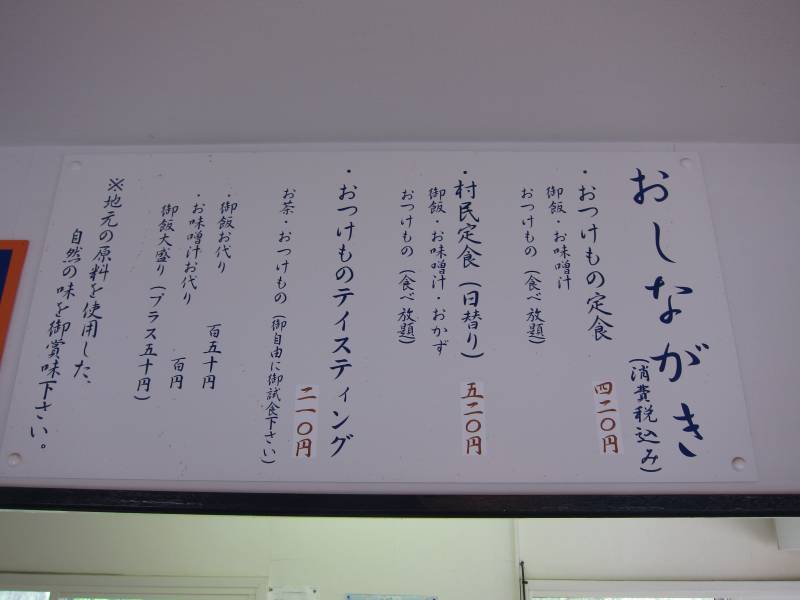 おしながき
（消費税込み）
・おつけもの定食
四二〇円
御飯・お味噌汁
おつけもの（食べ放題）
・村民定食（日替り）
五二〇円
御飯・お味噌汁・おかず
おつけもの（食べ放題）
・おつけものテイスティング
二一〇円
お茶・おつけもの（御自由に御試食下さい）
・御飯お代り 百五十円
・お味噌汁お代り 百円
御飯大盛り（プラス五十円）
※地元の原料を使用した、
自然の味を御賞味下さい。